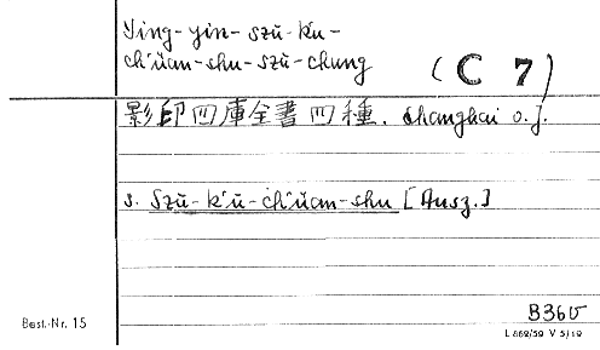 Ying-yin-szŭ-k'u-
ch'üan-shu-szŭ-chung
(C 7)
影印四庫全書四種. Shanghai o.J.
s. Szŭ-k'u-ch'üan-shu [Ausz.]
B360
Best.-Nr. 15
L 669/59 V 5/10